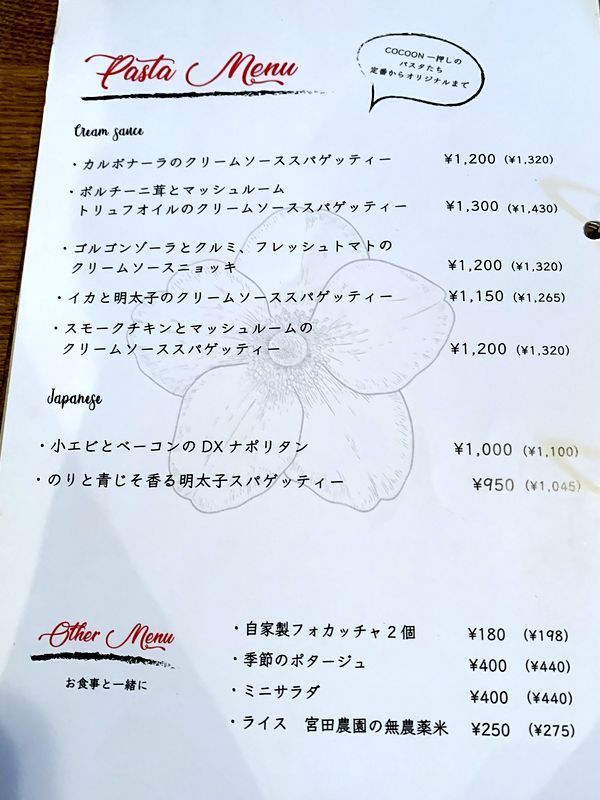 Pasta Menu
COCOON 一押しの
パスタたち
定番からオリジナルまで
Cream sauce
・カルボナーラのクリームソーススパゲッティー ¥1,200 (¥1,320)
・ポルチーニ茸とマッシュルーム
トリュフオイルのクリームソーススパゲッティー ¥1,300 (¥1,430)
・ゴルゴンゾーラとクルミ、フレッシュトマトの
クリームソースニョッキ ¥1,200 (¥1,320)
・イカと明太子のクリームソーススパゲッティー ¥1,150 (¥1,265)
・スモークチキンとマッシュルームの
クリームソーススパゲッティー ¥1,200 (¥1,320)
Japanese
・小エビとベーコンの DX ナポリタン ¥1,000 (¥1,100)
・のりと青じそ香る明太子スパゲッティー ¥950 (¥1,045)
Other Menu
お食事と一緒に
・自家製フォカッチャ2個 ¥180 (¥198)
・季節のポタージュ ¥400 (¥440)
・ミニサラダ ¥400 (¥440)
・ライス 宮田農園の無農薬米 ¥250 (¥275)